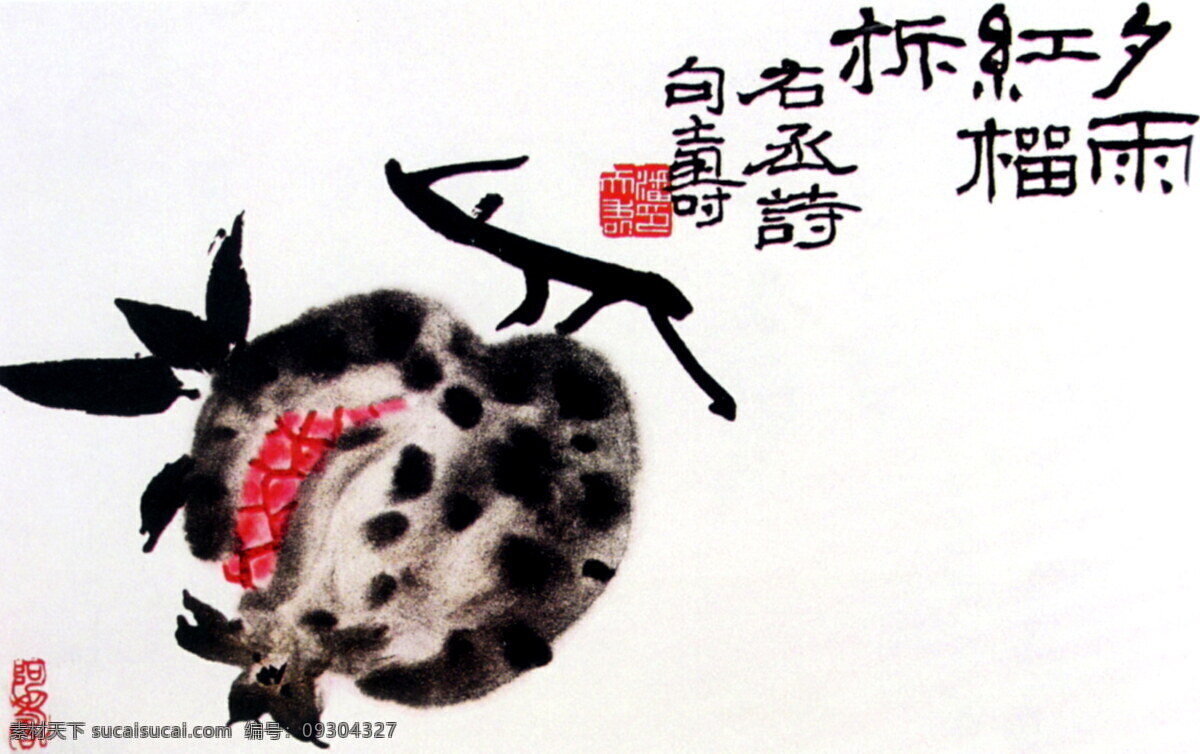 夕雨
紅榴
柝
右丞詩
句壽
阿壽
素材天下 sucaisucai.com 编号:09304327